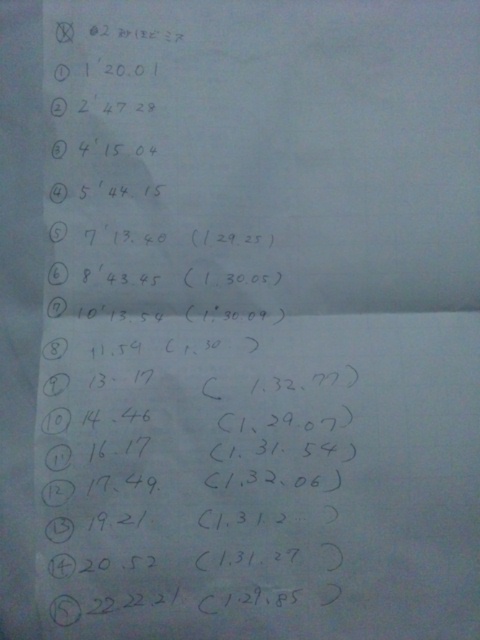 ① 1'20.01
② 2'47 28
③ 4'15.04
④ 5'44.15
⑤ 7'13.40 (1 29.25)
⑥ 8'43.45 (1.30.05)
⑦ 10'13.54 (1.30.09)
⑧ 11.54 (1.30 )
⑨ 13.17 ( 1.32.77)
⑩ 14.46 (1.29.07)
⑪ 16.17 (1.31.54)
⑫ 17.49. (1.32.06)
⑬ 19.21 (1.31.2 )
⑭ 20.52 (1.31.27 )
⑮ 22 22.21 (1.29.85 )